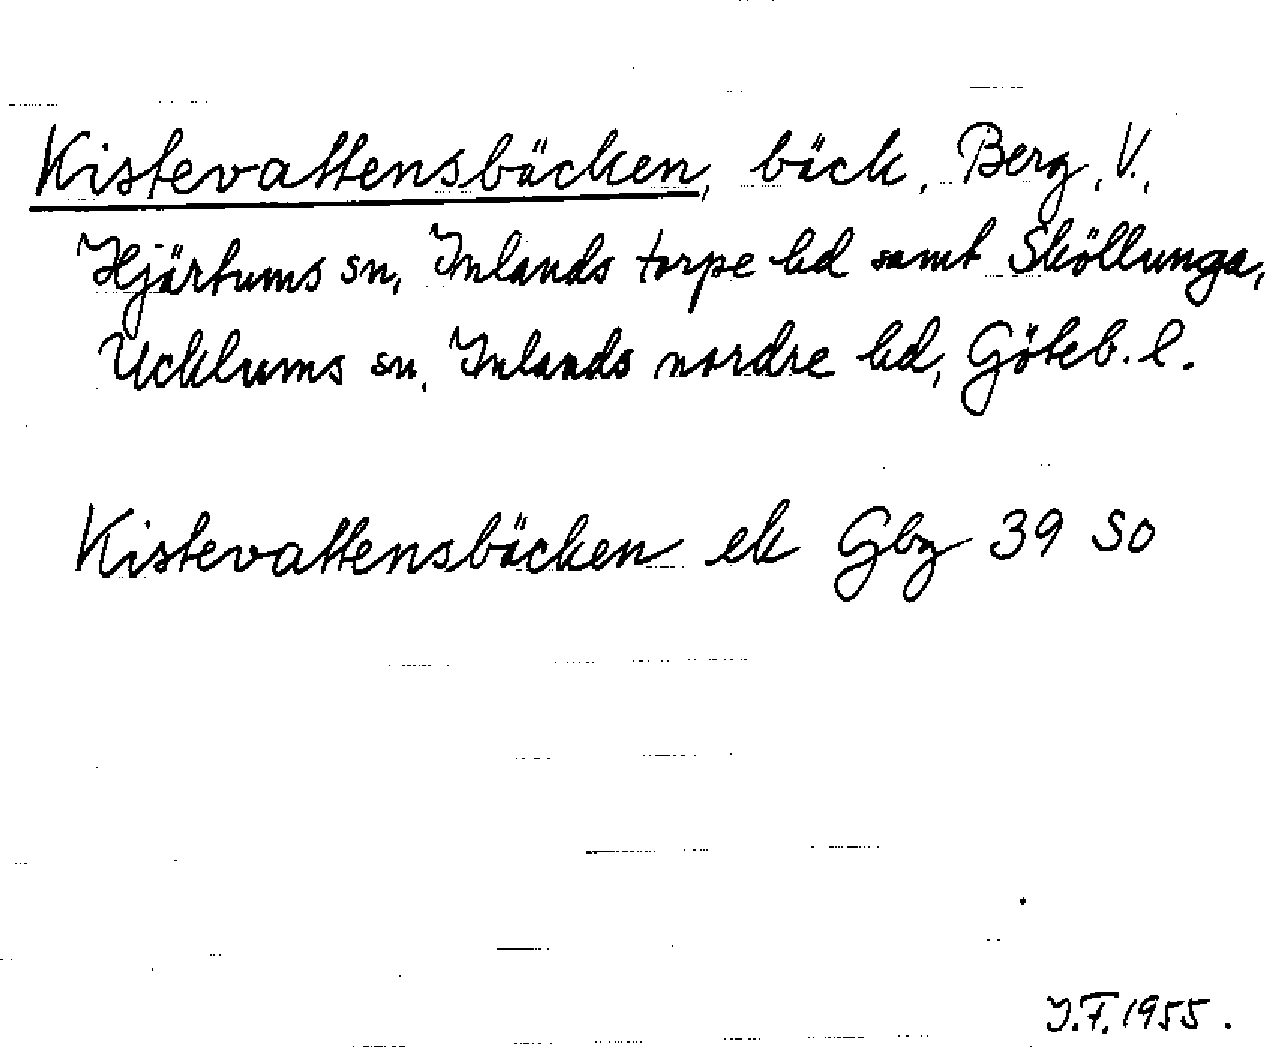 Kistevattensbäcken, bäck, Berg, V.,
Hjärtums sn, Inlands torpe hd samt Sköllunga,
Ucklums sn, Inlands nordre hd, Göteb. l.
Kistevattensbäcken ek Gbg 39 SO
J.F. 1955.